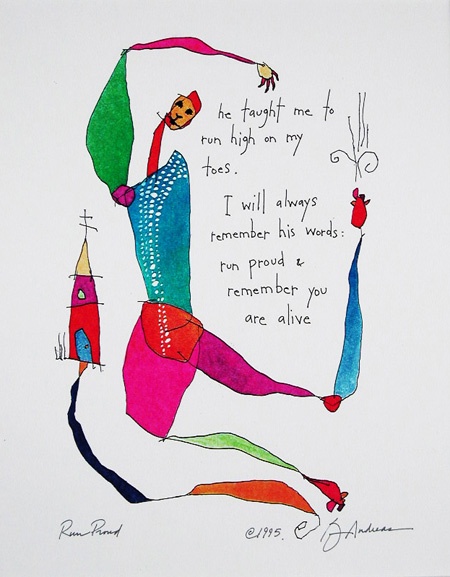 he taught me to
run high on my
toes.
I will always
remember his words:
run proud &
remember you
are alive
Run Proud
©1995. B Andreas